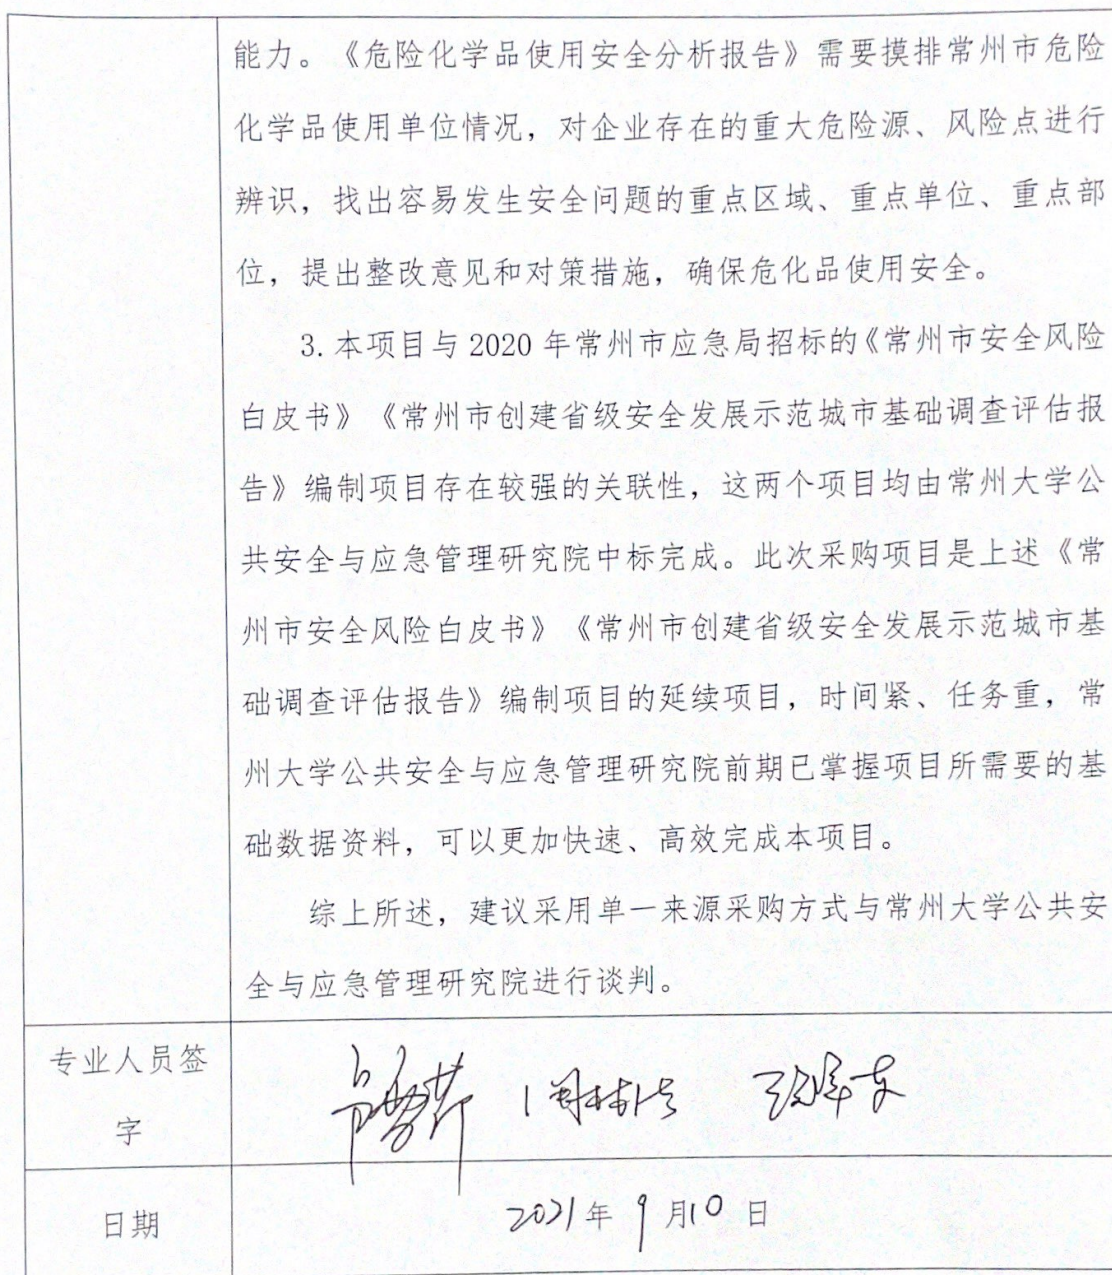 能力。《危险化学品使用安全分析报告》需要摸排常州市危险
化学品使用单位情况，对企业存在的重大危险源、风险点进行
辨识，找出容易发生安全问题的重点区域、重点单位、重点部
位，提出整改意见和对策措施，确保危化品使用安全。
3.本项目与 2020 年常州市应急局招标的《常州市安全风险
白皮书》《常州市创建省级安全发展示范城市基础调查评估报
告》编制项目存在较强的关联性，这两个项目均由常州大学公
共安全与应急管理研究院中标完成。此次采购项目是上述《常
州市安全风险白皮书》《常州市创建省级安全发展示范城市基
础调查评估报告》编制项目的延续项目，时间紧、任务重，常
州大学公共安全与应急管理研究院前期已掌握项目所需要的基
础数据资料，可以更加快速、高效完成本项目。
综上所述，建议采用单一来源采购方式与常州大学公共安
全与应急管理研究院进行谈判。
专业人员签
字
日期
2021年 9 月10 日